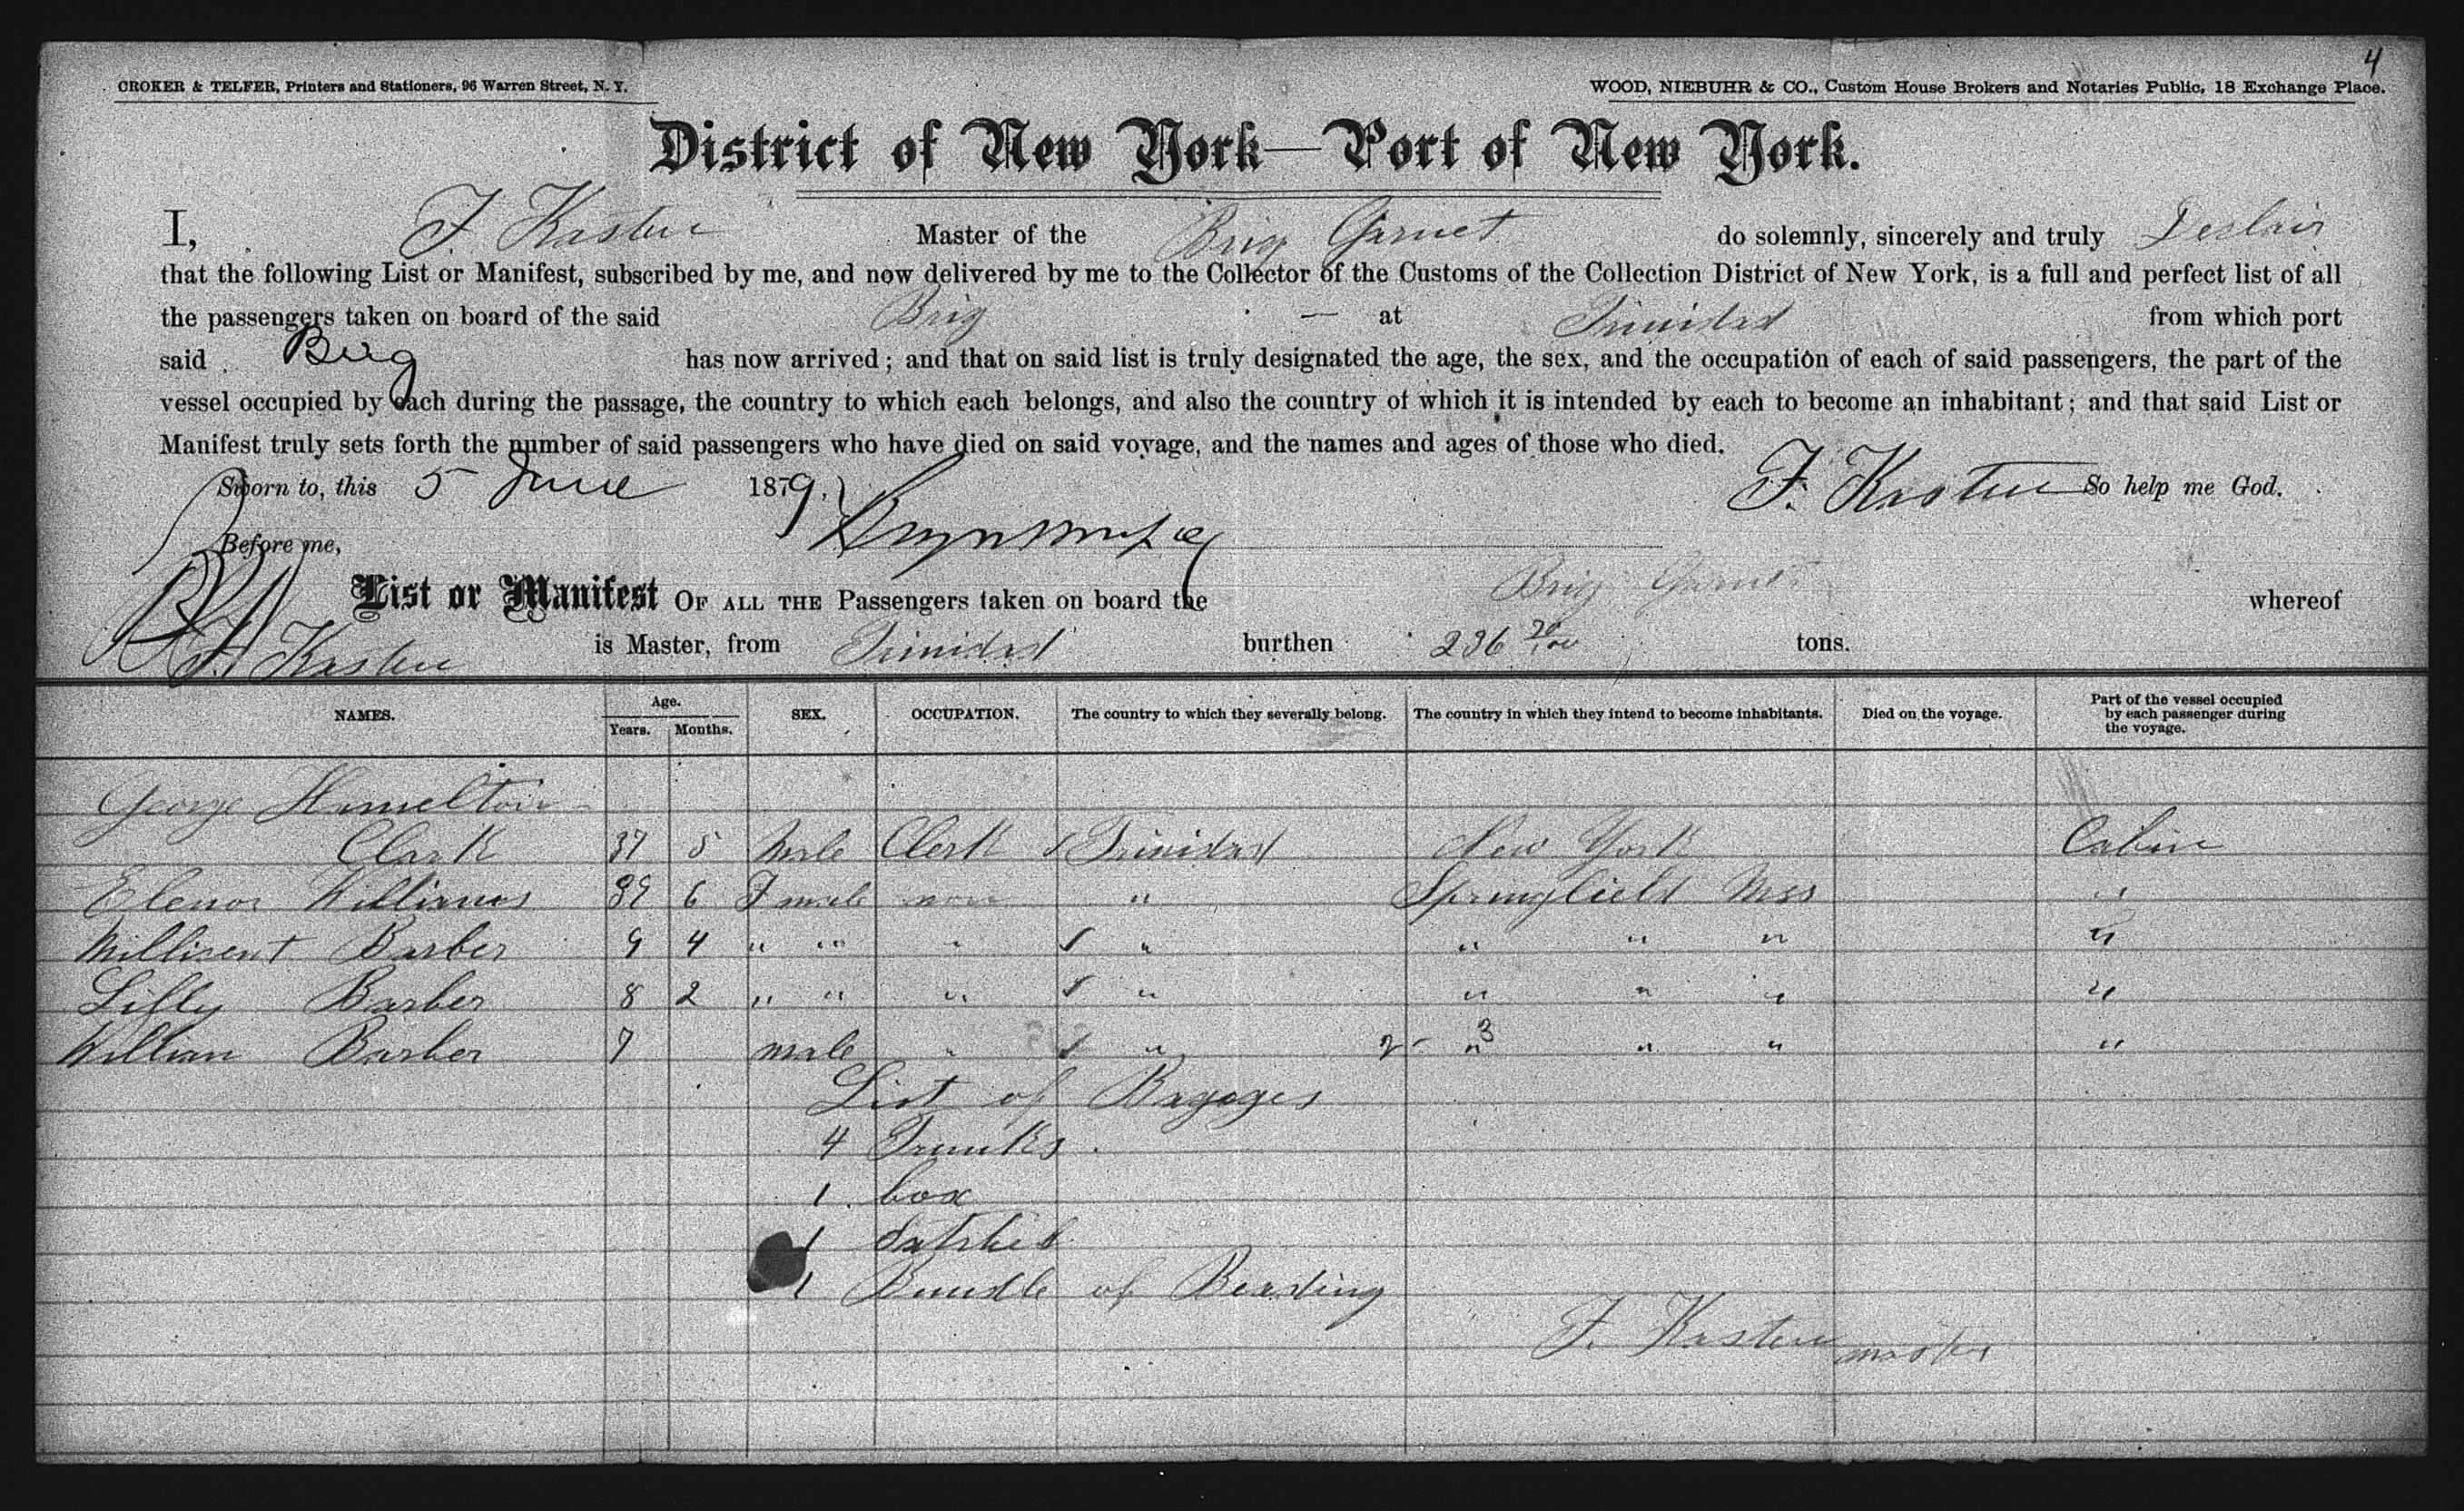 4
CROKER & TELFER, Printers and Stationers, 96 Warren Street, N. Y.
WOOD, NIEBUHR & CO., Custom House Brokers and Notaries Public, 18 Exchange Place.
District of New York—Port of New York.
I, F. Kasten Master of the Brig Garnet do solemnly, sincerely and truly Declair
that the following List or Manifest, subscribed by me, and now delivered by me to the Collector of the Customs of the Collection District of New York, is a full and perfect list of all
the passengers taken on board of the said Brig — at Trinidad from which port
said Brig has now arrived; and that on said list is truly designated the age, the sex, and the occupation of each of said passengers, the part of the
vessel occupied by each during the passage, the country to which each belongs, and also the country of which it is intended by each to become an inhabitant; and that said List or
Manifest truly sets forth the number of said passengers who have died on said voyage, and the names and ages of those who died.
Sworn to, this 5 June 1879. F. Kasten So help me God.
Before me,
List or Manifest OF ALL THE Passengers taken on board the Brig Garnet whereof
F. Kasten is Master, from Trinidad burthen 236 tons.
NAMES. Age. Years. Months. SEX. OCCUPATION. The country to which they severally belong. The country in which they intend to become inhabitants. Died on the voyage. Part of the vessel occupied by each passenger during the voyage.
George Hamelton
Clark 37 5 Male Clerk Trinidad New York Cabin
Elenor Williams 39 6 Fmale none " Springfield Mss "
Millisent Barber 9 4 " " " " " " " "
Lilly Barber 8 2 " " " " " " " "
William Barber 7 male " " 2 - 3 " " " "
List of Bagages
4 Trunks
1 box
1 Satchel
1 Bundle of Beading
F. Kasten master